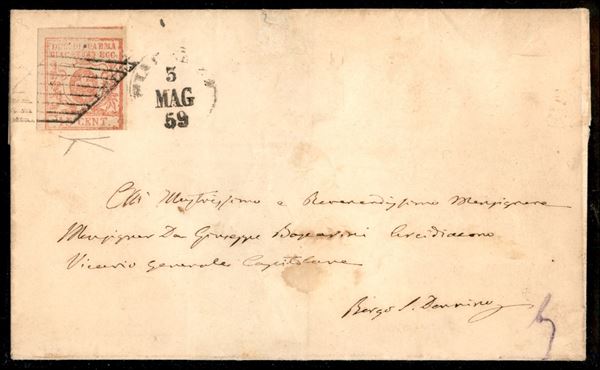 DUC. DI PARMA
PIAC. ECC.
CENT.
3
MAG
59
All Illustrissimo e Reverendissimo Monsignore
Monsignor Don Giuseppe Arcidiacono
Vicario generale Capitolare
Borgo S. Donnino